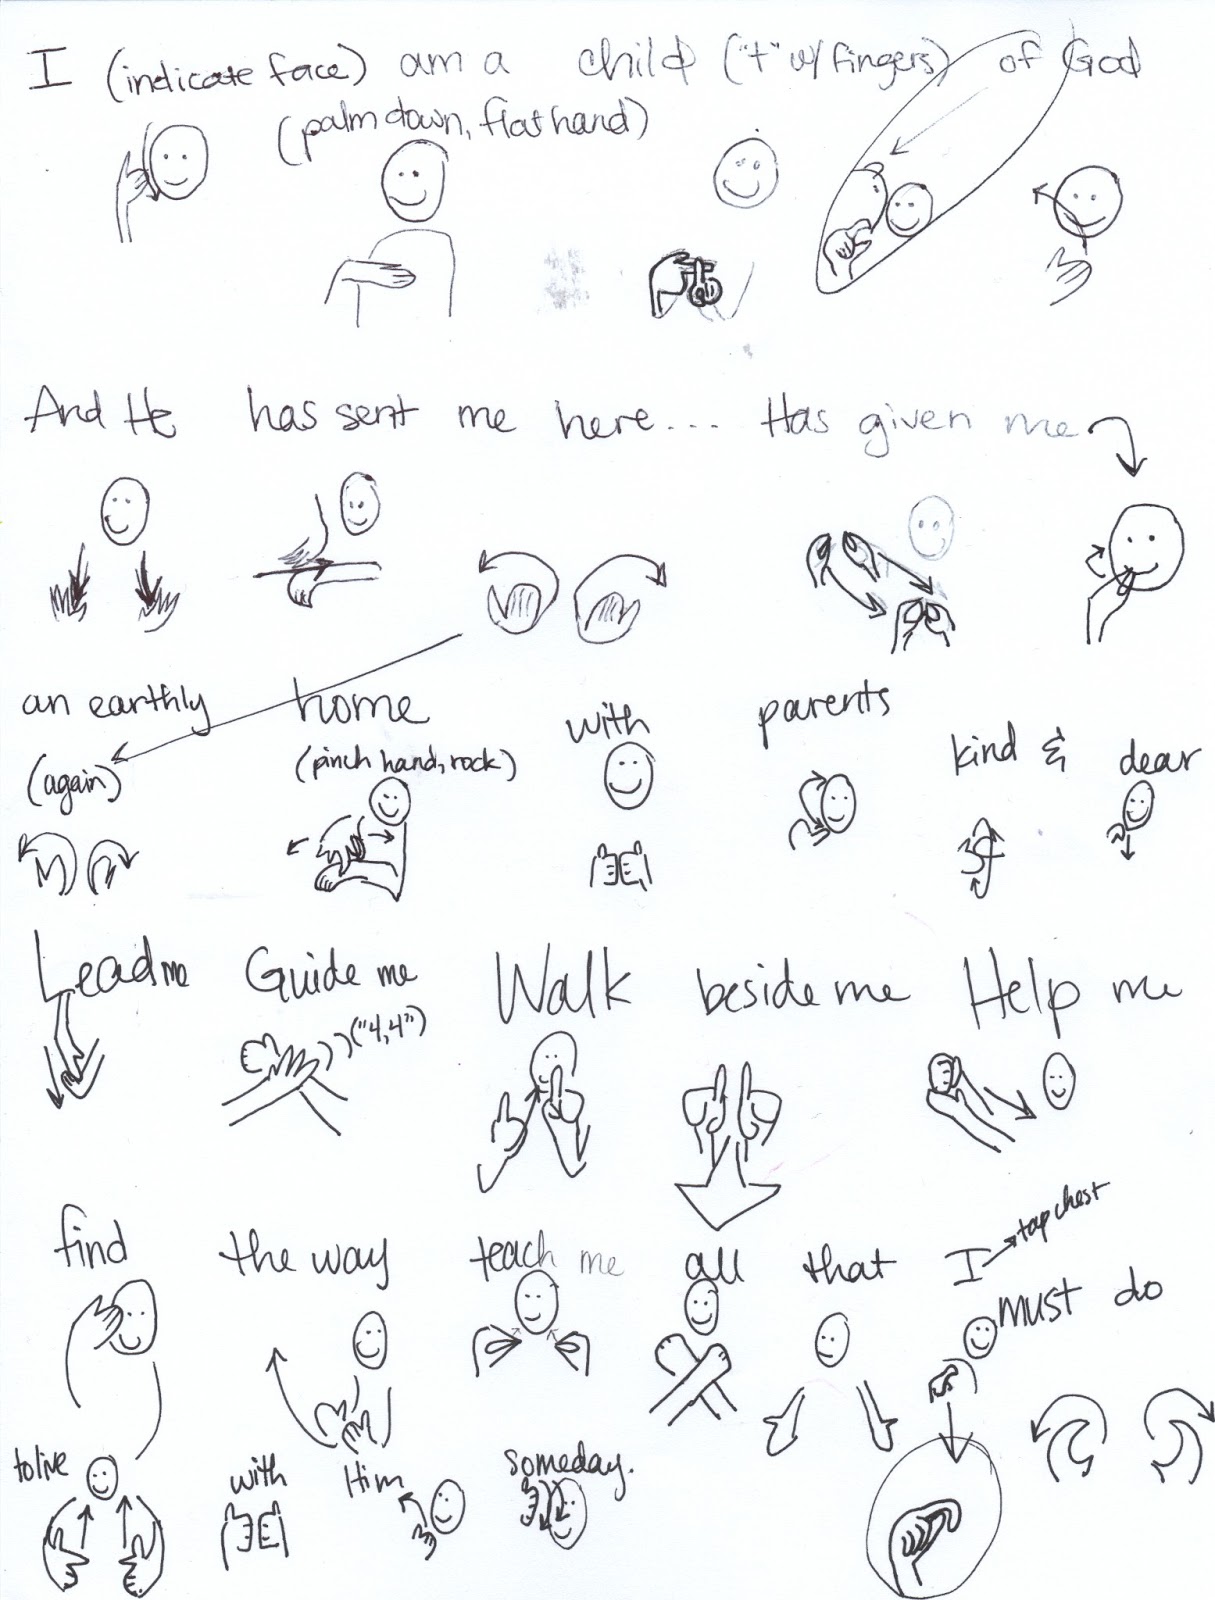 I (indicate face) am a child ("t" w/ fingers) of God
(palm down, flat hand)
And He has sent me here... Has given me
an earthly home with parents kind & dear
(again) (pinch hand, rock)
Lead me Guide me Walk beside me Help me
("4,4")
find the way teach me all that I must do
tap chest
to live with Him someday.